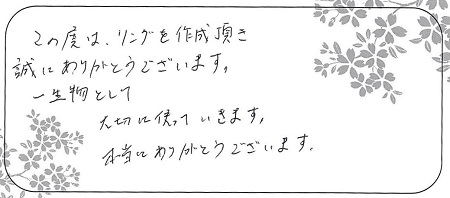 この度は、リングを作成頂き
誠にありがとうございます。
一生物として
大切に使っていきます。
本当にありがとうございます.